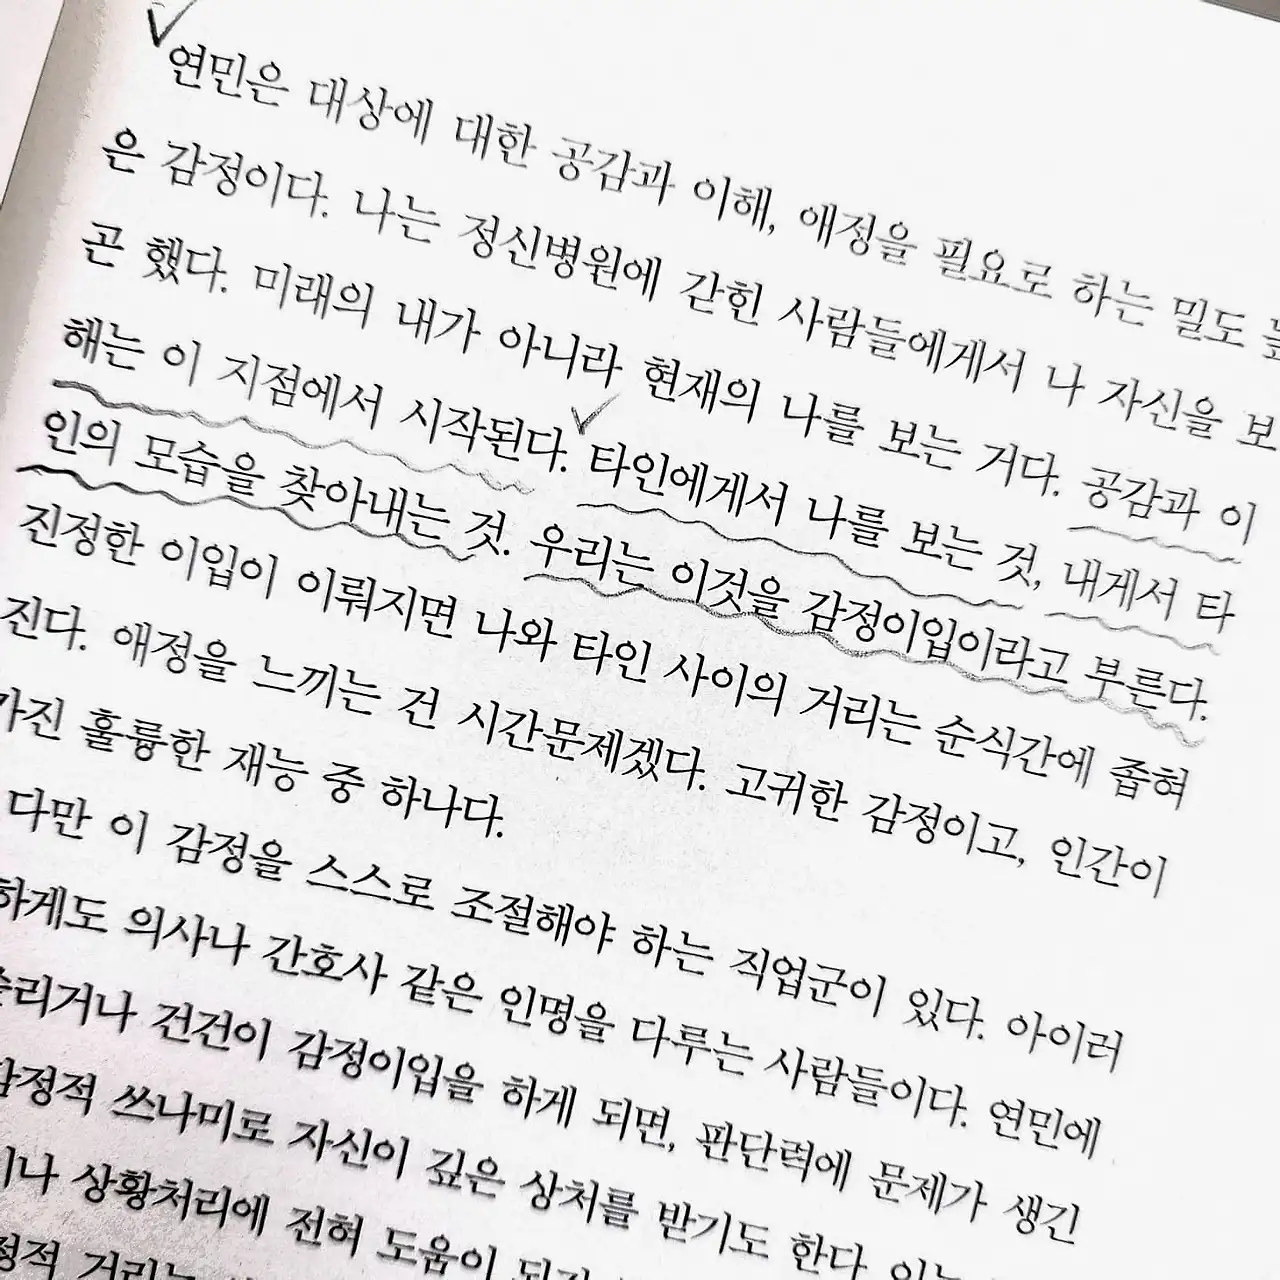 연민은 대상에 대한 공감과 이해, 애정을 필요로 하는 밀도
은 감정이다. 나는 정신병원에 갇힌 사람들에게서 나 자신을 보
곤 했다. 미래의 내가 아니라 현재의 나를 보는 거다. 공감과 이
해는 이 지점에서 시작된다. 타인에게서 나를 보는 것, 내게서 타
인의 모습을 찾아내는 것. 우리는 이것을 감정이입이라고 부른다.
진정한 이입이 이뤄지면 나와 타인 사이의 거리는 순식간에 좁혀
진다. 애정을 느끼는 건 시간문제겠다. 고귀한 감정이고, 인간이
가진 훌륭한 재능 중 하나다.
다만 이 감정을 스스로 조절해야 하는 직업군이 있다. 아이러
하게도 의사나 간호사 같은 인명을 다루는 사람들이다. 연민에
리거나 건건이 감정이입을 하게 되면, 판단력에 문제가 생긴
감정적 쓰나미로 자신이 깊은 상처를 받기도 한다.
나 상황처리에 전혀 도움이